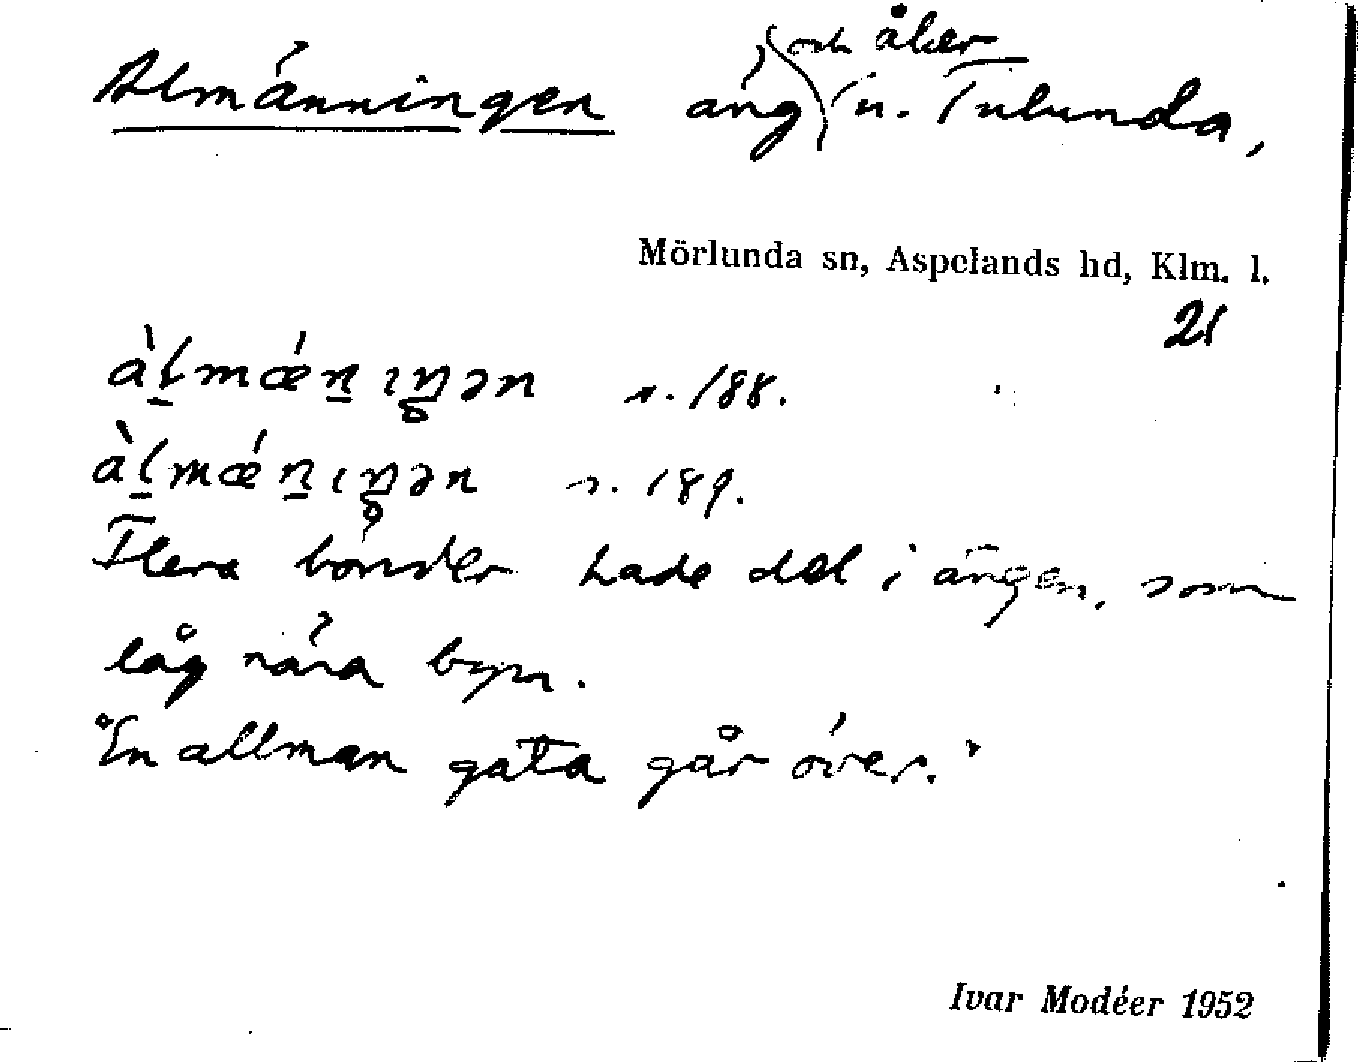 Almänningen äng och åker (n. Tulunda,
Mörlunda sn, Aspelands hd, Klm. l.
21
àl̠mǽn̠ıŋ̠ən s. 188.
àl̠mǽn̠ıŋ̠ən s. 189.
Flera bönder hade del i ängen, som
låg nära byn.
"En allman gata går över."
Ivar Modéer 1952